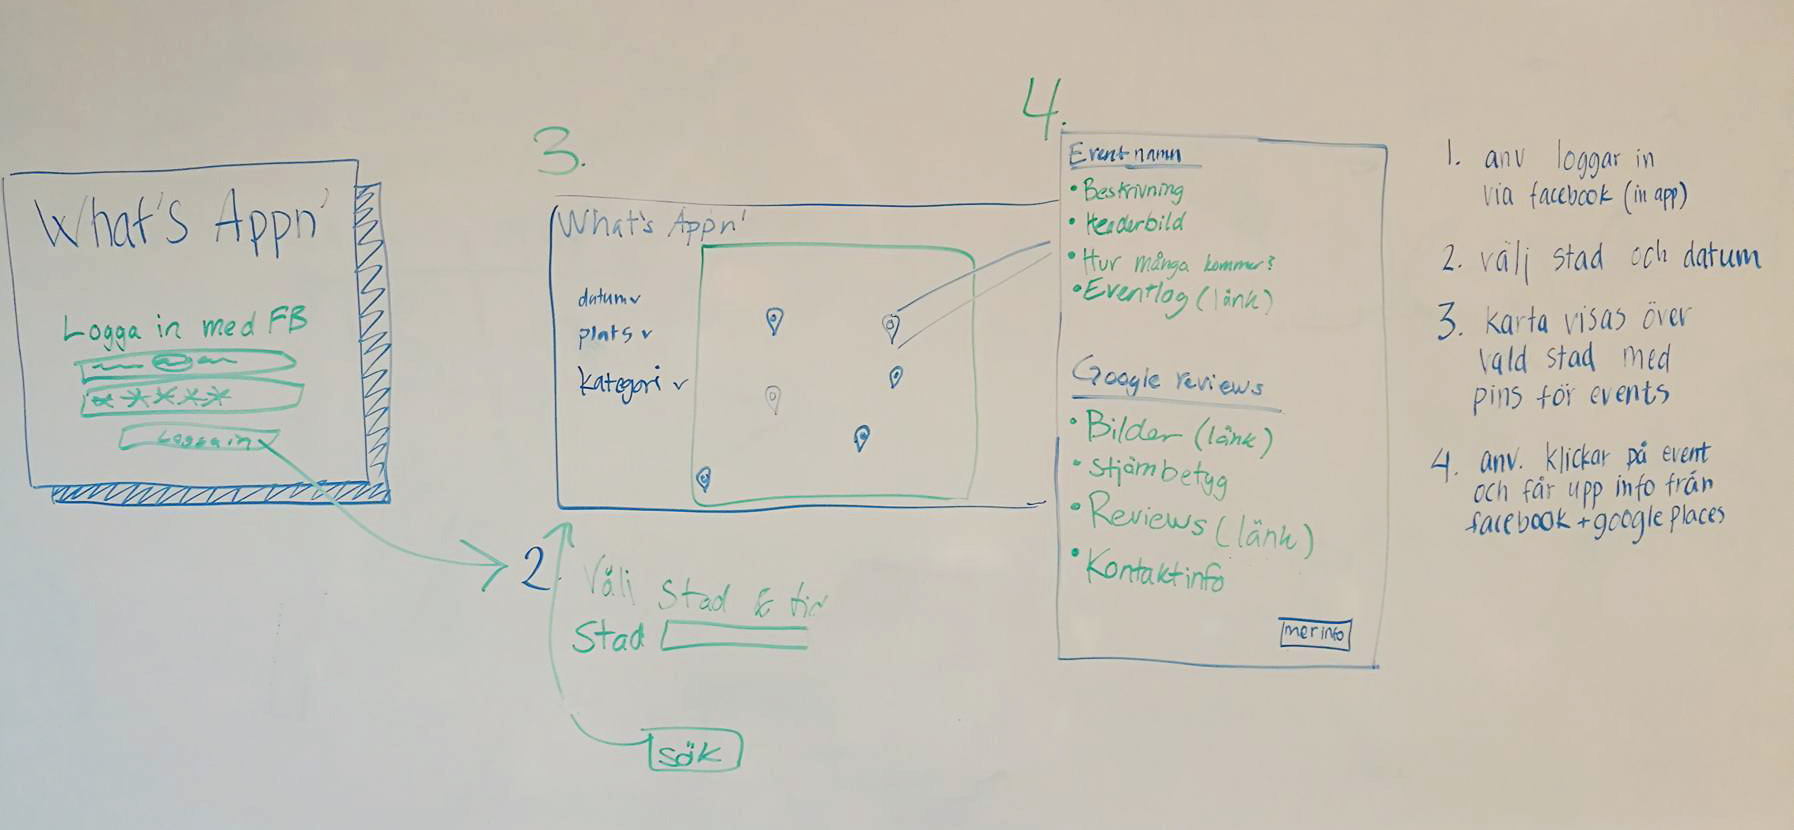 What's Appn'
Logga in med FB
*****
Logga in
3.
What's Appn'
datum v
plats v
kategori v
2.
Välj Stad & tid
Stad
sök
4.
Event namn
• Beskrivning
• Headerbild
• Hur många kommer?
• Eventlog (länk)
Google reviews
• Bilder (länk)
• Stjärnbetyg
• Reviews (länk)
• Kontaktinfo
mer info
1. anv loggar in
via facebook (in app)
2. välj stad och datum
3. karta visas över
vald stad med
pins för events
4. anv. klickar på event
och får upp info från
facebook + google places